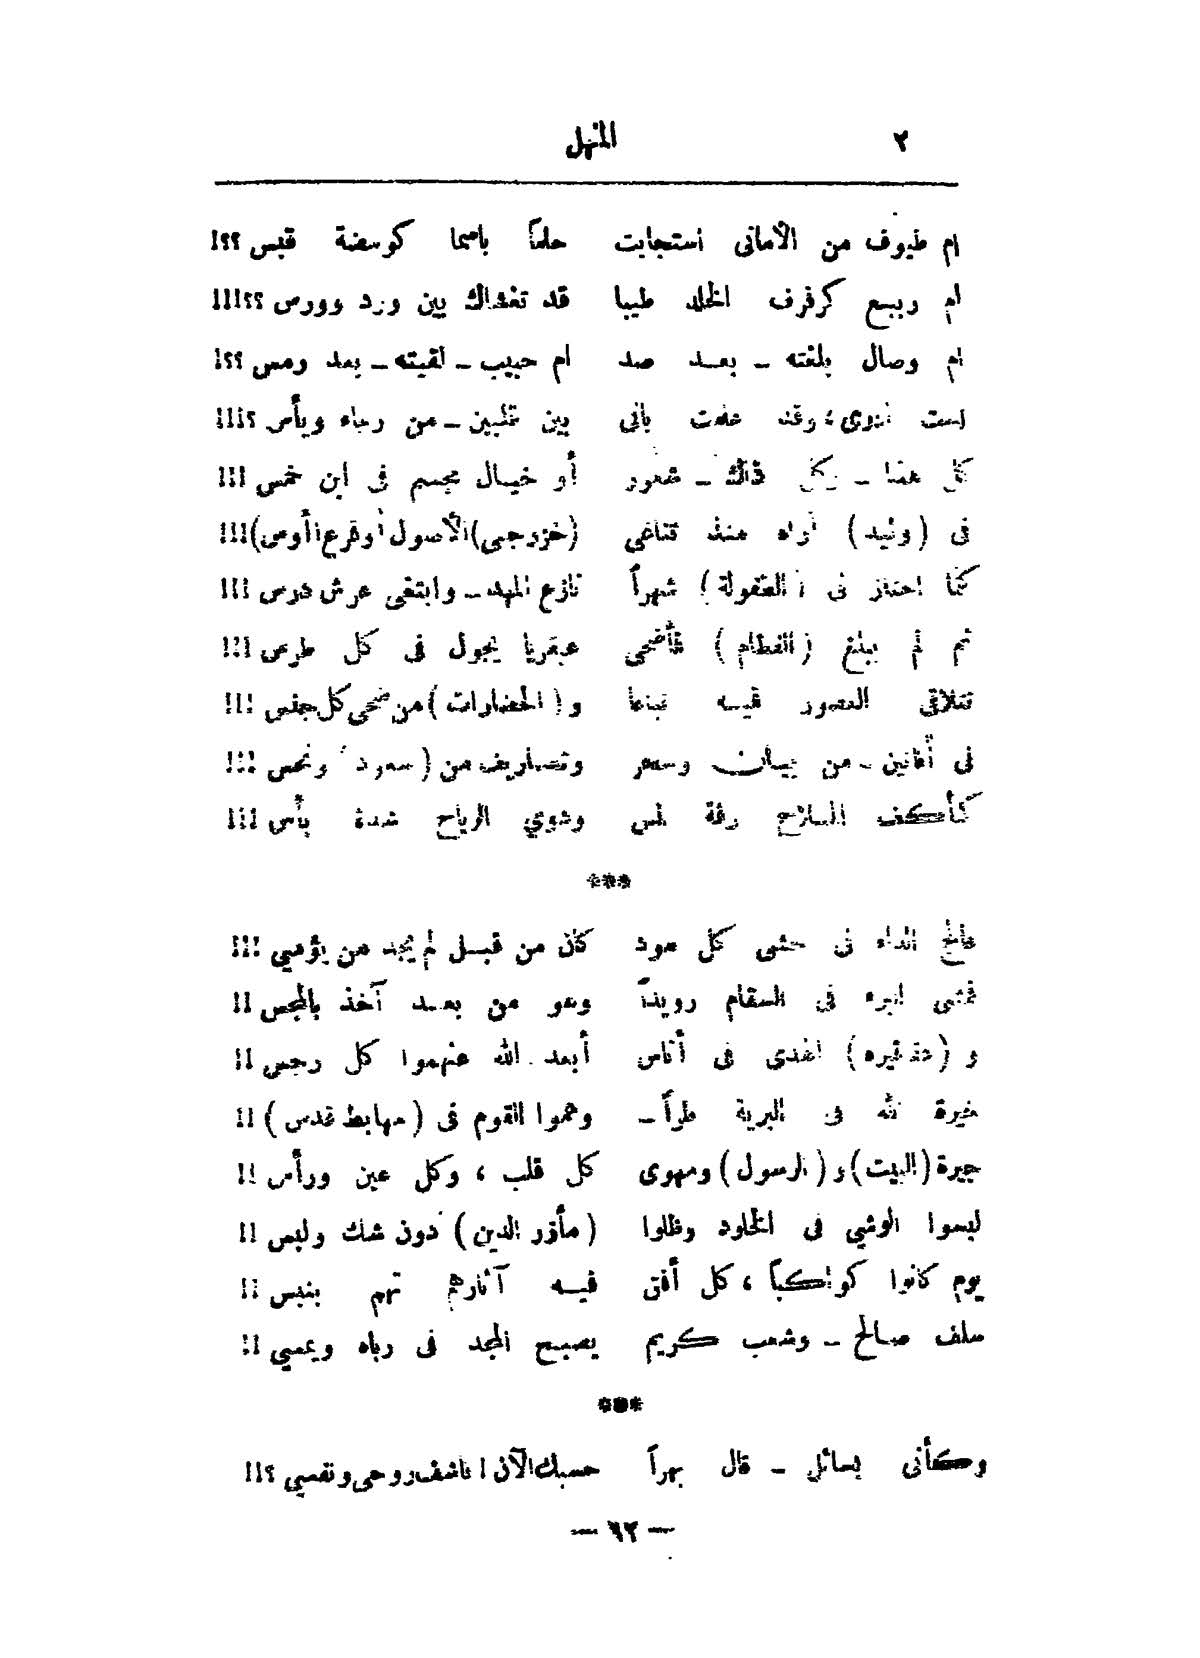 ٢ المنهل
ام طيوف من الأمانى استجابت حلماً باسما كومضة قبس ؟؟!
ام ربيع كرفرف الخلد طيبا قد تغشاك بين ورد وورس ؟؟!!!
ام وصال بلغته ـ بعد صد ام حبيب ـ لقيته ـ بعد رمس ؟؟!
لست ادرى ؛ وقد علمت بانى بين قلبين ـ من رجاء ويأس ؟!!!
كل هذا ـ وكل ذاك ـ شعور أو خيال مجسم فى ابن خمس !!!
فى ( وليد ) أراه منذ تناغى ( خزرجى ) الأصول أو فرع أوس ) !!!
كلما اجتاز فى ( الطفولة ) شهراً نازع المهد ـ وابتغى عرش درس !!!
ثم لم يبلغ ( الفطام ) فأضحى عبقريا يجول فى كل طرس !!!
تتلاقى العصور فيه تباعا و ( الحضارات ) من ضحى كل جنس !!!
فى أفانين ـ من بيان وسحر وتصاريف من ( سعود ونحس !!!
كأكف الملاح رقة لمس ودوي الرياح شدة بأس !!!
***
عالج الداء فى حشى كل مود كان من قبل لم يجد من يؤسي !!!
فمشى البرء فى السقام رويداً وهو من بعد آخذ بالمجس !!
و ( ذخائره ) الهدى فى أناس أبعد الله عنهموا كل رجس !!
خيرة لله فى البرية طراً ـ وهموا القوم فى ( مهابط قدس ) !!
جيرة ( البيت ) و ( الرسول ) ومهوى كل قلب ، وكل عين ورأس !!
لبسوا الوشي فى الخلود وظلوا ( مآزر الدين ) دون شك ولبس !!
يوم كانوا كواكباً ، كل أفق فيه آثارهم تهم بنبس !!
سلف صالح ـ وشعب كريم يصبح المجد فى رباه ويمسي !!
***
وكأنى بسائل ـ قال بهراً حسبك الآن ! فاشف روحى ونفسي ؟!!
— ٦٢ —